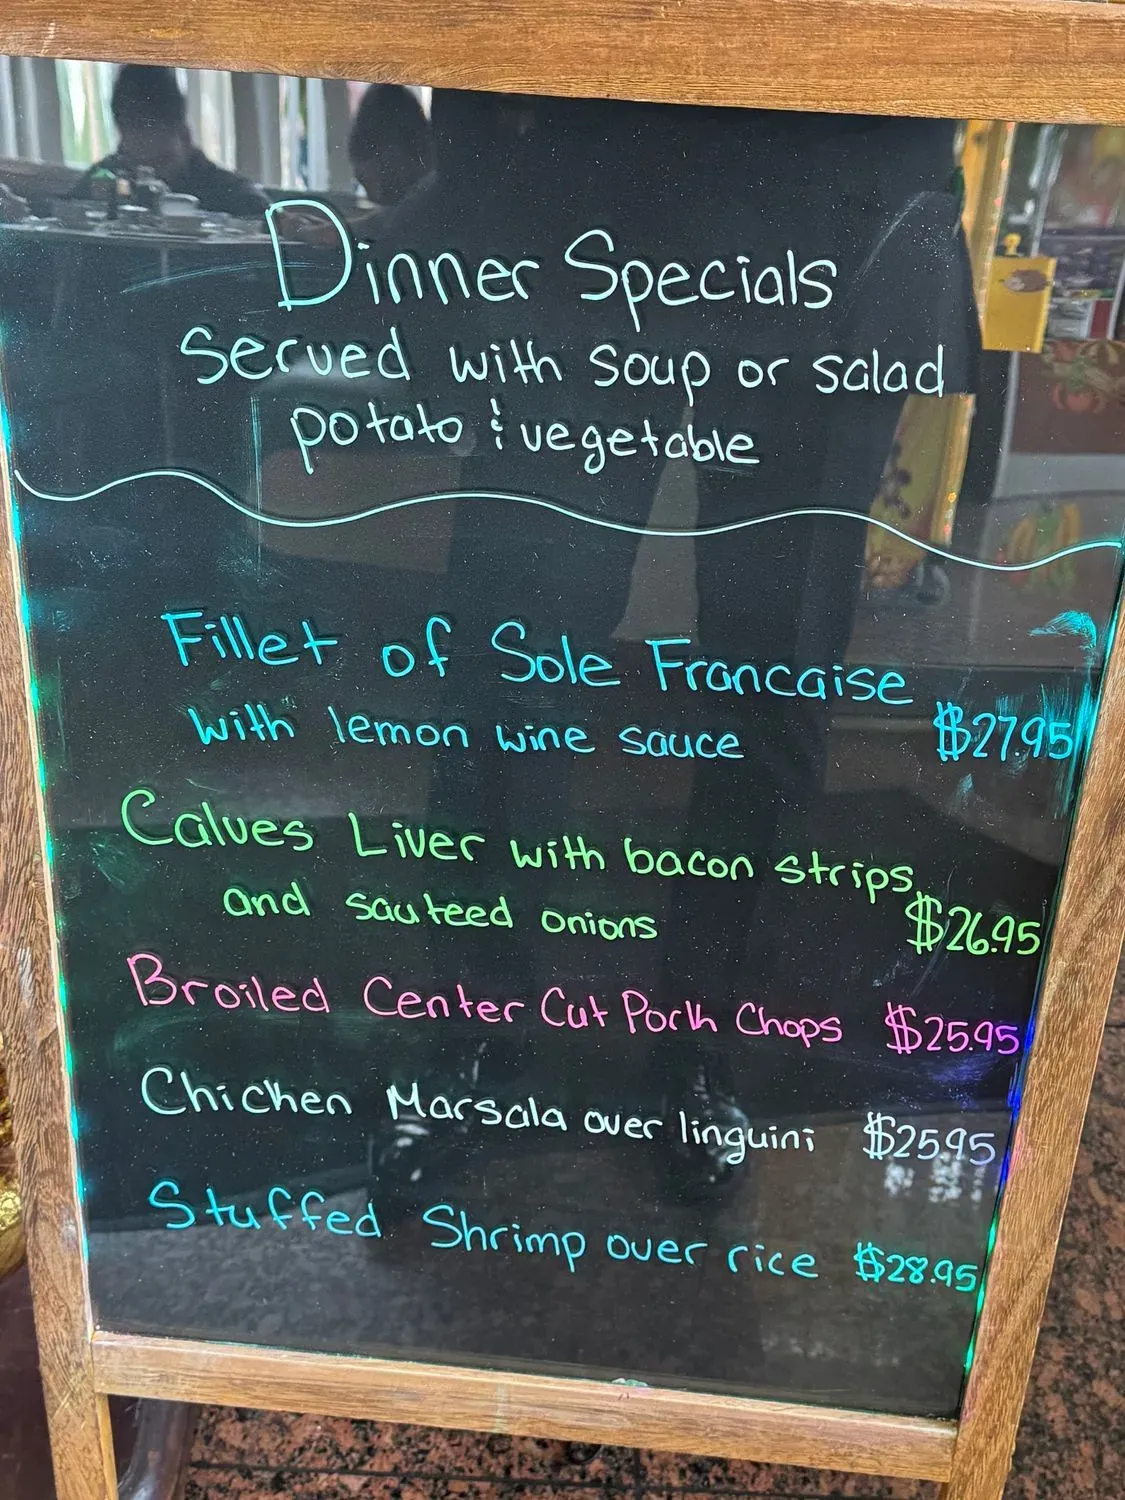 Dinner Specials
Served with soup or salad
potato & vegetable
Fillet of Sole Francaise
with lemon wine sauce $27.95
Calves Liver with bacon strips,
and sauteed onions $26.95
Broiled Center Cut Pork Chops $25.95
Chicken Marsala over linguini $25.95
Stuffed Shrimp over rice $28.95